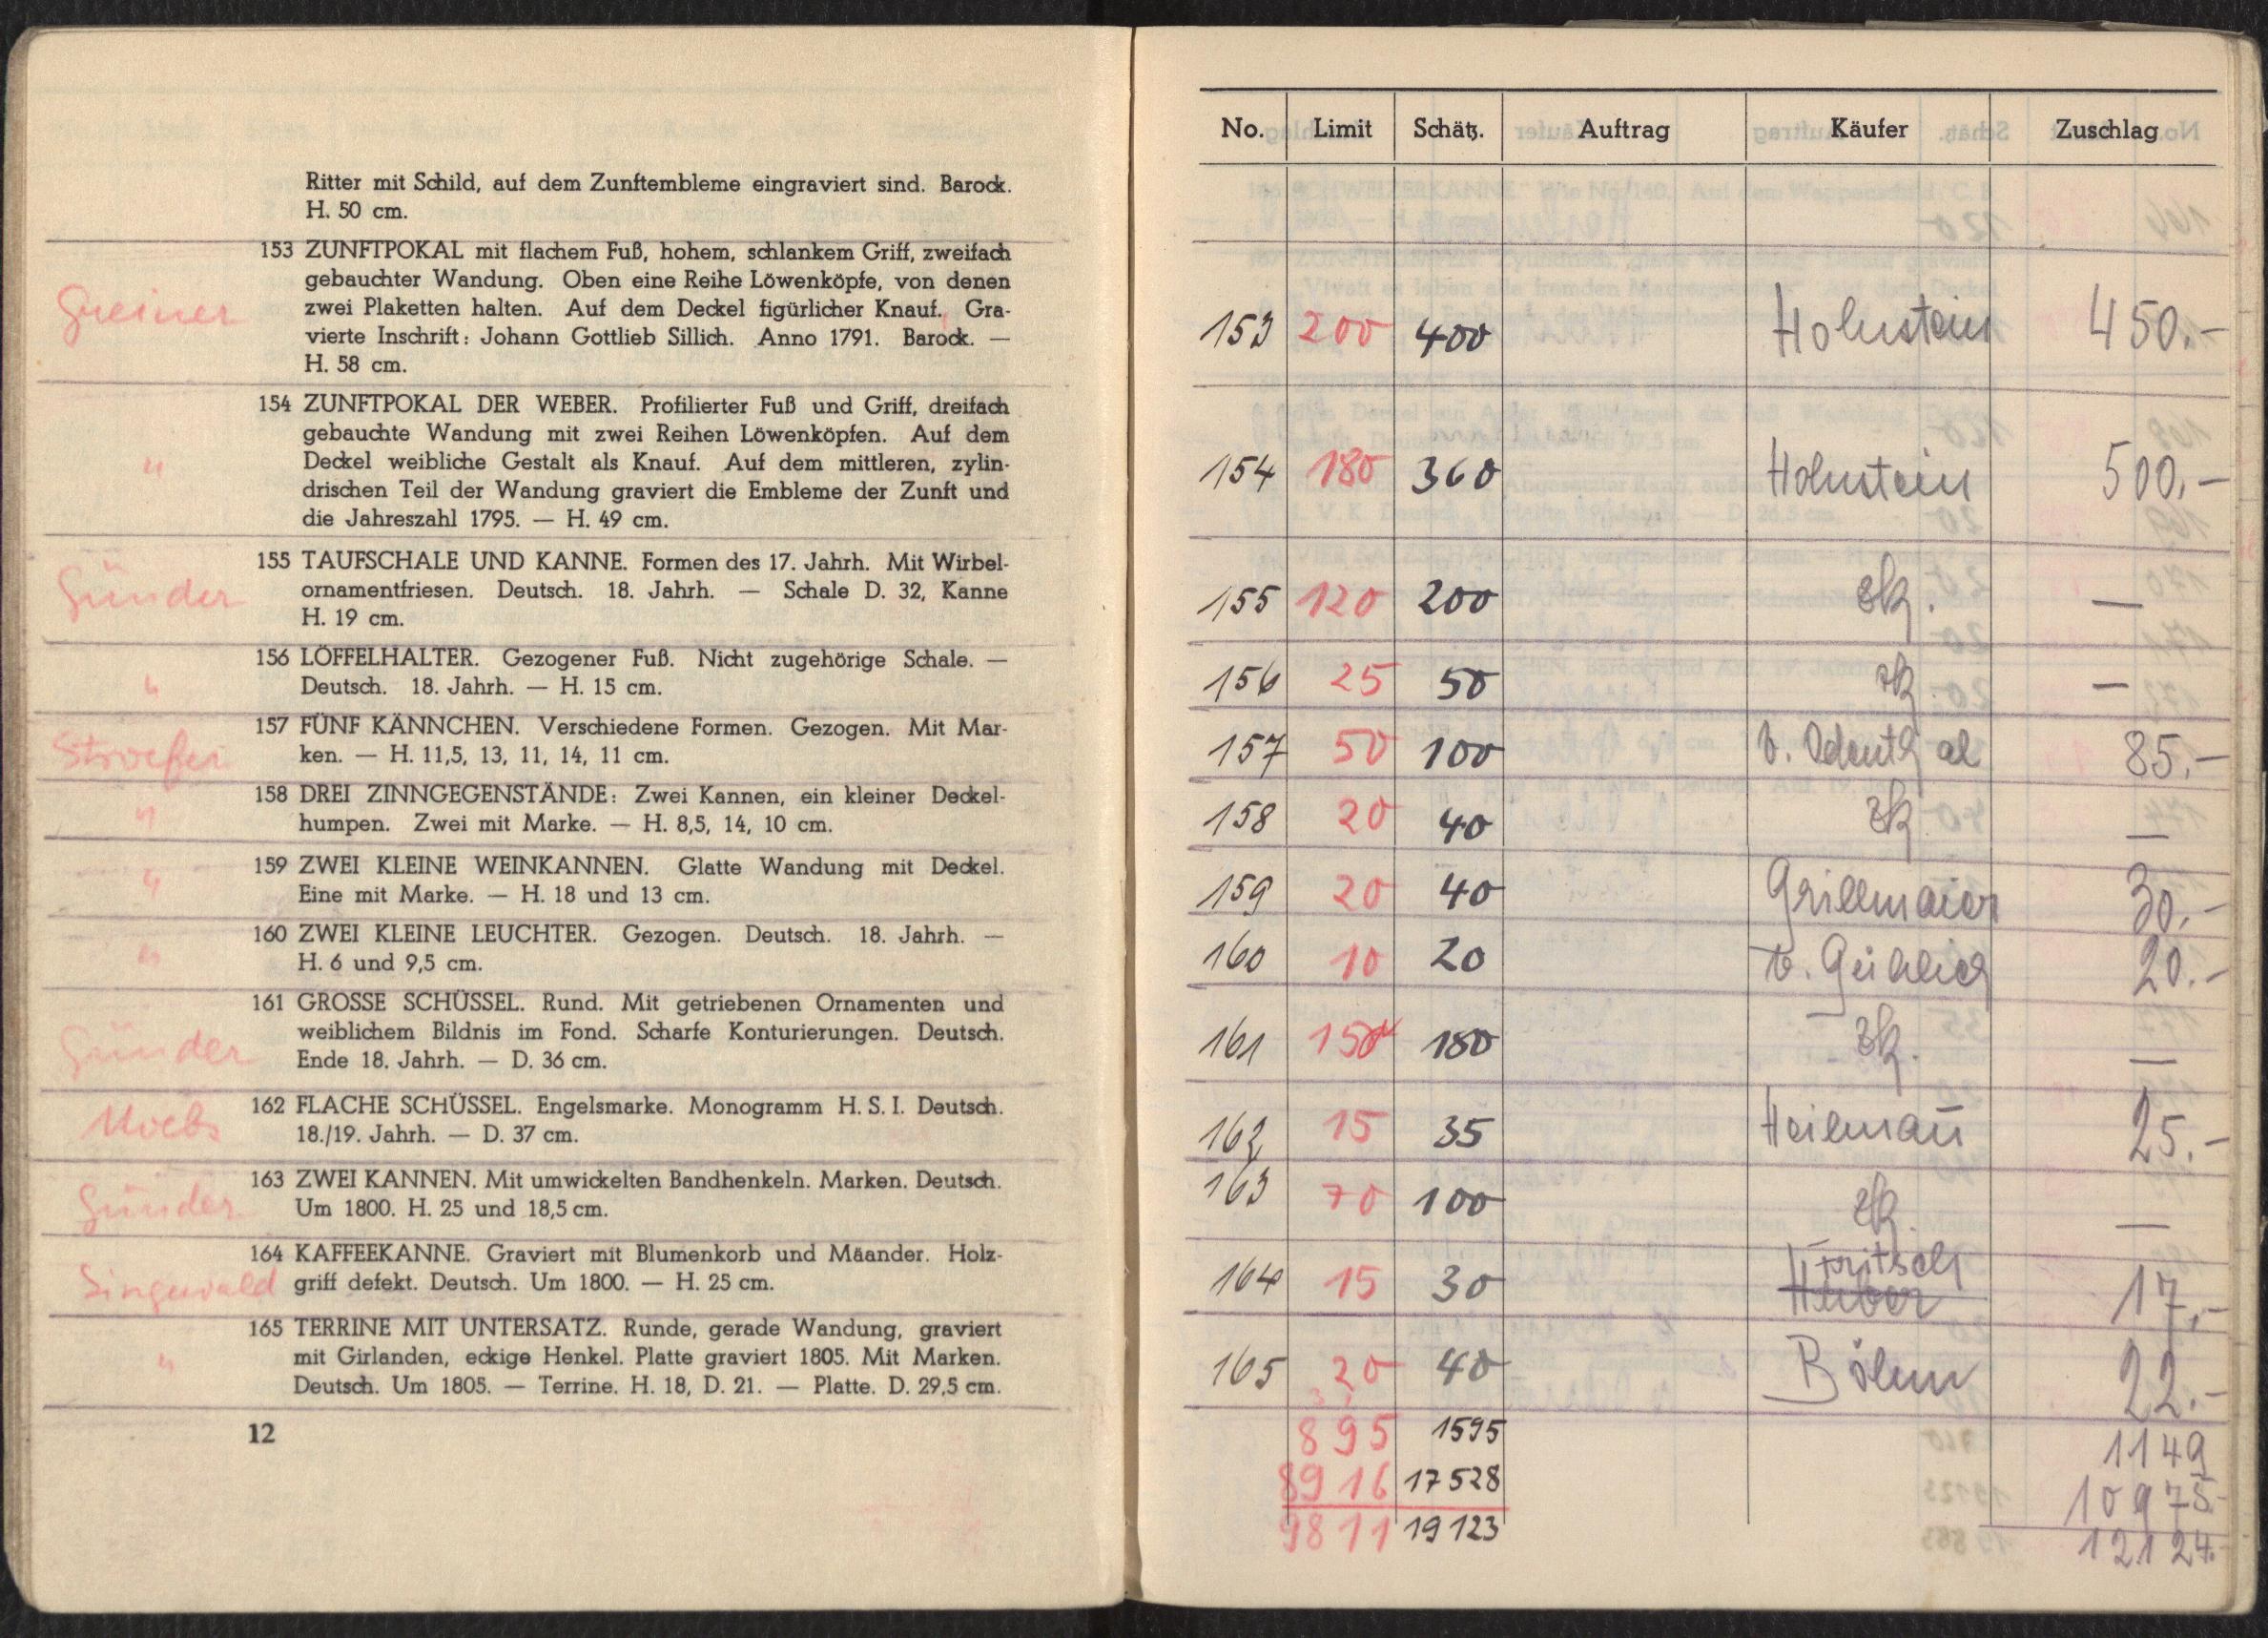 Ritter mit Schild, auf dem Zunftembleme eingraviert sind. Barock.
H. 50 cm.
153 ZUNFTPOKAL mit flachem Fuß, hohem, schlankem Griff, zweifach
gebauchter Wandung. Oben eine Reihe Löwenköpfe, von denen
Greiner zwei Plaketten halten. Auf dem Deckel figürlicher Knauf. Gra-
vierte Inschrift: Johann Gottlieb Sillich. Anno 1791. Barock. —
H. 58 cm.
154 ZUNFTPOKAL DER WEBER. Profilierter Fuß und Griff, dreifach
gebauchte Wandung mit zwei Reihen Löwenköpfen. Auf dem
" Deckel weibliche Gestalt als Knauf. Auf dem mittleren, zylin-
drischen Teil der Wandung graviert die Embleme der Zunft und
die Jahreszahl 1795. — H. 49 cm.
155 TAUFSCHALE UND KANNE. Formen des 17. Jahrh. Mit Wirbel-
Günder ornamentfriesen. Deutsch. 18. Jahrh. — Schale D. 32, Kanne
H. 19 cm.
156 LÖFFELHALTER. Gezogener Fuß. Nicht zugehörige Schale. —
" Deutsch. 18. Jahrh. — H. 15 cm.
157 FÜNF KÄNNCHEN. Verschiedene Formen. Gezogen. Mit Mar-
ken. — H. 11,5, 13, 11, 14, 11 cm.
158 DREI ZINNGEGENSTÄNDE: Zwei Kannen, ein kleiner Deckel-
" humpen. Zwei mit Marke. — H. 8,5, 14, 10 cm.
159 ZWEI KLEINE WEINKANNEN. Glatte Wandung mit Deckel.
" Eine mit Marke. — H. 18 und 13 cm.
160 ZWEI KLEINE LEUCHTER. Gezogen. Deutsch. 18. Jahrh. —
" H. 6 und 9,5 cm.
161 GROSSE SCHÜSSEL. Rund. Mit getriebenen Ornamenten und
weiblichem Bildnis im Fond. Scharfe Konturierungen. Deutsch.
Günder Ende 18. Jahrh. — D. 36 cm.
162 FLACHE SCHÜSSEL. Engelsmarke. Monogramm H. S. I. Deutsch.
18./19. Jahrh. — D. 37 cm.
163 ZWEI KANNEN. Mit umwickelten Bandhenkeln. Marken. Deutsch.
Günder Um 1800. H. 25 und 18,5 cm.
164 KAFFEEKANNE. Graviert mit Blumenkorb und Mäander. Holz-
Singewald griff defekt. Deutsch. Um 1800. — H. 25 cm.
165 TERRINE MIT UNTERSATZ. Runde, gerade Wandung, graviert
" mit Girlanden, eckige Henkel. Platte graviert 1805. Mit Marken.
Deutsch. Um 1805. — Terrine. H. 18, D. 21. — Platte. D. 29,5 cm.
12
No. Limit Schätz. Auftrag Käufer Zuschlag
153 200 400 Holnstein 450.-
154 180 360 Holnstein 500.-
155 120 200 zk. —
156 25 50 zk. —
157 50 100 v. Odenthal 85.-
158 20 40 zk. —
159 20 40 Grillmaier 30.-
160 10 20 20.-
161 150 180 zk. —
162 15 35 Heilmañ 25.-
163 70 100 zk. —
Fritsch
164 15 30 Huber 17.-
165 20 40 Böhm 22.-
895 1595 1149
8916 17528 10975.-
9811 19123 12124.-